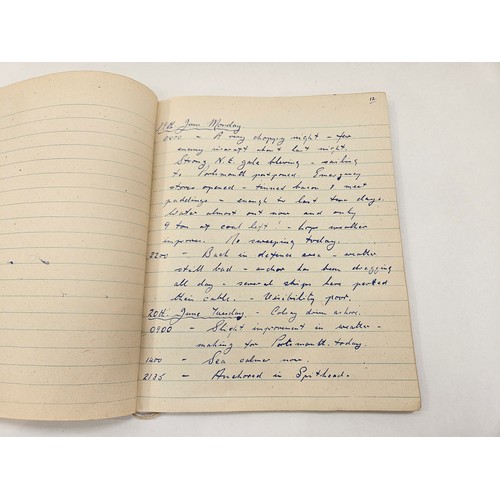 12
19th June Monday
0400 - A very choppy night - few
enemy aircraft about last night.
Strong N.E. gale blowing - sailing
to Portsmouth postponed. Emergency
stores opened - tinned bacon & meat
puddings - enough to last two days.
Water almost out now and only
9 ton of coal left - hope weather
improves. No sweeping today.
2200 - Back in defence area - weather
still bad - anchor has been dragging
all day - several ships have parted
their cable. - Visibility poor.
20th June Tuesday - driven ashore.
0900 - Slight improvement in weather -
making for Portsmouth today.
1400 - Sea calmer now.
2135 - Anchored in Spithead.